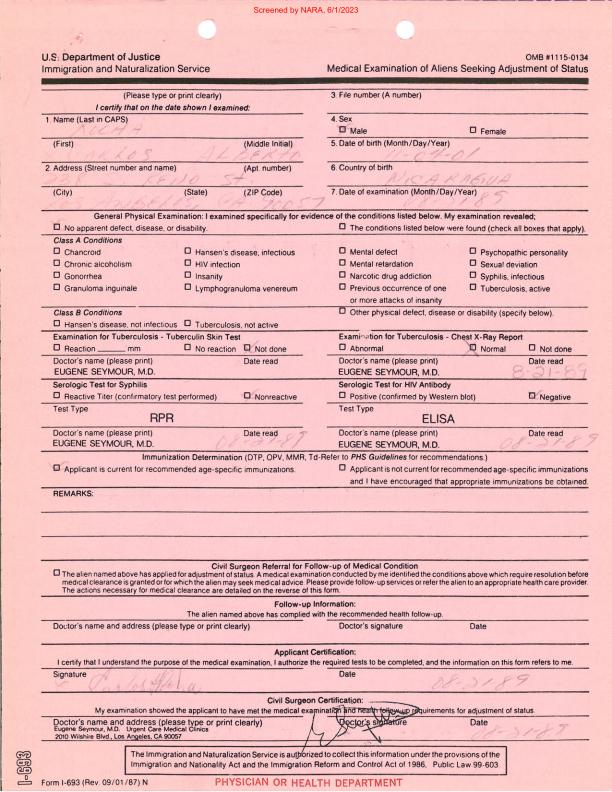 Screened by NARA, 6/1/2023
U.S. Department of Justice
Immigration and Naturalization Service
OMB #1115-0134
Medical Examination of Aliens Seeking Adjustment of Status
(Please type or print clearly)
I certify that on the date shown I examined:
3. File number (A number)
1. Name (Last in CAPS)
4. Sex
☐ Male ☐ Female
(First) (Middle Initial)
CARLOS ALBERTO
5. Date of birth (Month/Day/Year)
11-04-01
2. Address (Street number and name) (Apt. number)
6. Country of birth
NICARAGUA
(City) (State) (ZIP Code)
LOS ANGELES CA 90057
7. Date of examination (Month/Day/Year)
08-21-89
General Physical Examination: I examined specifically for evidence of the conditions listed below. My examination revealed;
☐ No apparent defect, disease, or disability.
☐ The conditions listed below were found (check all boxes that apply).
Class A Conditions
☐ Chancroid ☐ Hansen's disease, infectious ☐ Mental defect ☐ Psychopathic personality
☐ Chronic alcoholism ☐ HIV infection ☐ Mental retardation ☐ Sexual deviation
☐ Gonorrhea ☐ Insanity ☐ Narcotic drug addiction ☐ Syphilis, infectious
☐ Granuloma inguinale ☐ Lymphogranuloma venereum ☐ Previous occurrence of one ☐ Tuberculosis, active
or more attacks of insanity
Class B Conditions
☐ Other physical defect, disease or disability (specify below).
☐ Hansen's disease, not infectious ☐ Tuberculosis, not active
Examination for Tuberculosis - Tuberculin Skin Test
☐ Reaction ______ mm ☐ No reaction ☐ Not done
Doctor's name (please print) Date read
EUGENE SEYMOUR, M.D.
Examination for Tuberculosis - Chest X-Ray Report
☐ Abnormal ☐ Normal ☐ Not done
Doctor's name (please print) Date read
EUGENE SEYMOUR, M.D. 8-21-89
Serologic Test for Syphilis
☐ Reactive Titer (confirmatory test performed) ☐ Nonreactive
Test Type
RPR
Doctor's name (please print) Date read
EUGENE SEYMOUR, M.D. 08-21-89
Serologic Test for HIV Antibody
☐ Positive (confirmed by Western blot) ☐ Negative
Test Type
ELISA
Doctor's name (please print) Date read
EUGENE SEYMOUR, M.D. 08-21-89
Immunization Determination (DTP, OPV, MMR, Td-Refer to PHS Guidelines for recommendations.)
☐ Applicant is current for recommended age-specific immunizations.
☐ Applicant is not current for recommended age-specific immunizations
and I have encouraged that appropriate immunizations be obtained.
REMARKS:
Civil Surgeon Referral for Follow-up of Medical Condition
☐ The alien named above has applied for adjustment of status. A medical examination conducted by me identified the conditions above which require resolution before
medical clearance is granted or for which the alien may seek medical advice. Please provide follow-up services or refer the alien to an appropriate health care provider.
The actions necessary for medical clearance are detailed on the reverse of this form.
Follow-up Information:
The alien named above has complied with the recommended health follow-up.
Doctor's name and address (please type or print clearly) Doctor's signature Date
Applicant Certification:
I certify that I understand the purpose of the medical examination, I authorize the required tests to be completed, and the information on this form refers to me.
Signature Date
08-21-89
Civil Surgeon Certification:
My examination showed the applicant to have met the medical examination and health follow-up requirements for adjustment of status.
Doctor's name and address (please type or print clearly) Doctor's signature Date
Eugene Seymour, M.D. Urgent Care Medical Clinics
2010 Wilshire Blvd., Los Angeles, CA 90057
08-21-89
The Immigration and Naturalization Service is authorized to collect this information under the provisions of the
Immigration and Nationality Act and the Immigration Reform and Control Act of 1986, Public Law 99-603.
I-693
Form I-693 (Rev. 09/01/87) N
PHYSICIAN OR HEALTH DEPARTMENT